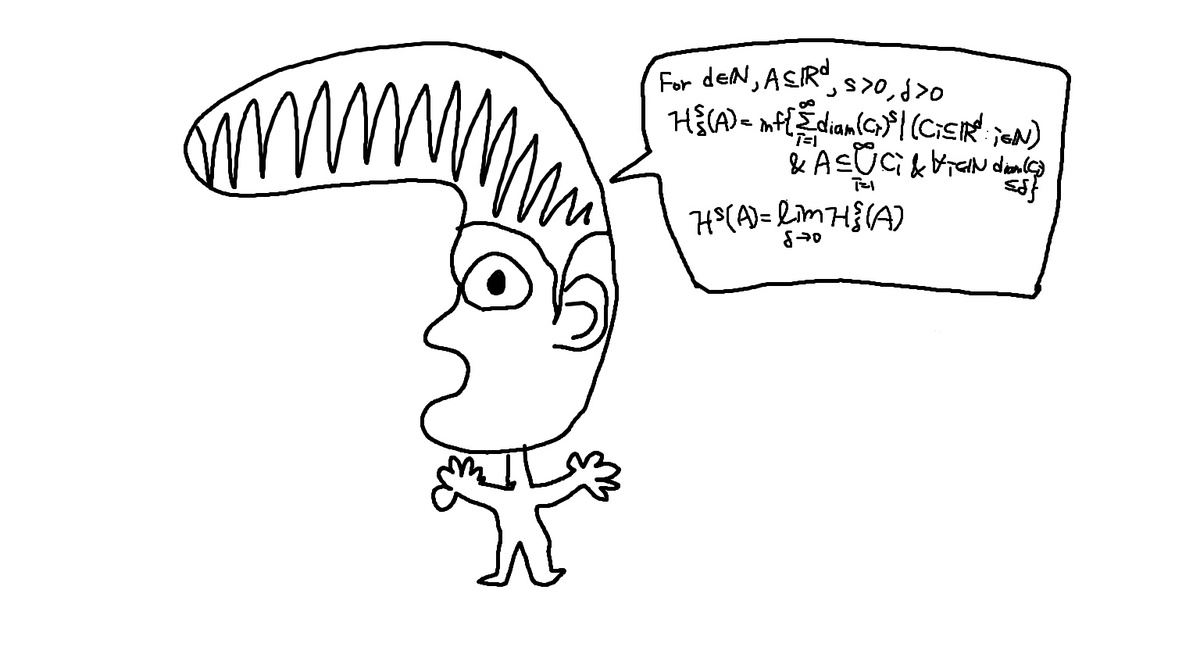 For d∈ℕ, A⊆ℝᵈ, s>0, δ>0
ℋˢ_δ(A) = inf{∑_{i=1}^∞ diam(Cᵢ)ˢ | (Cᵢ⊆ℝᵈ : i∈ℕ)
& A⊆⋃_{i=1}^∞ Cᵢ & ∀i∈ℕ diam(Cᵢ)
≤δ}
ℋˢ(A) = lim_{δ→0} ℋˢ_δ(A)